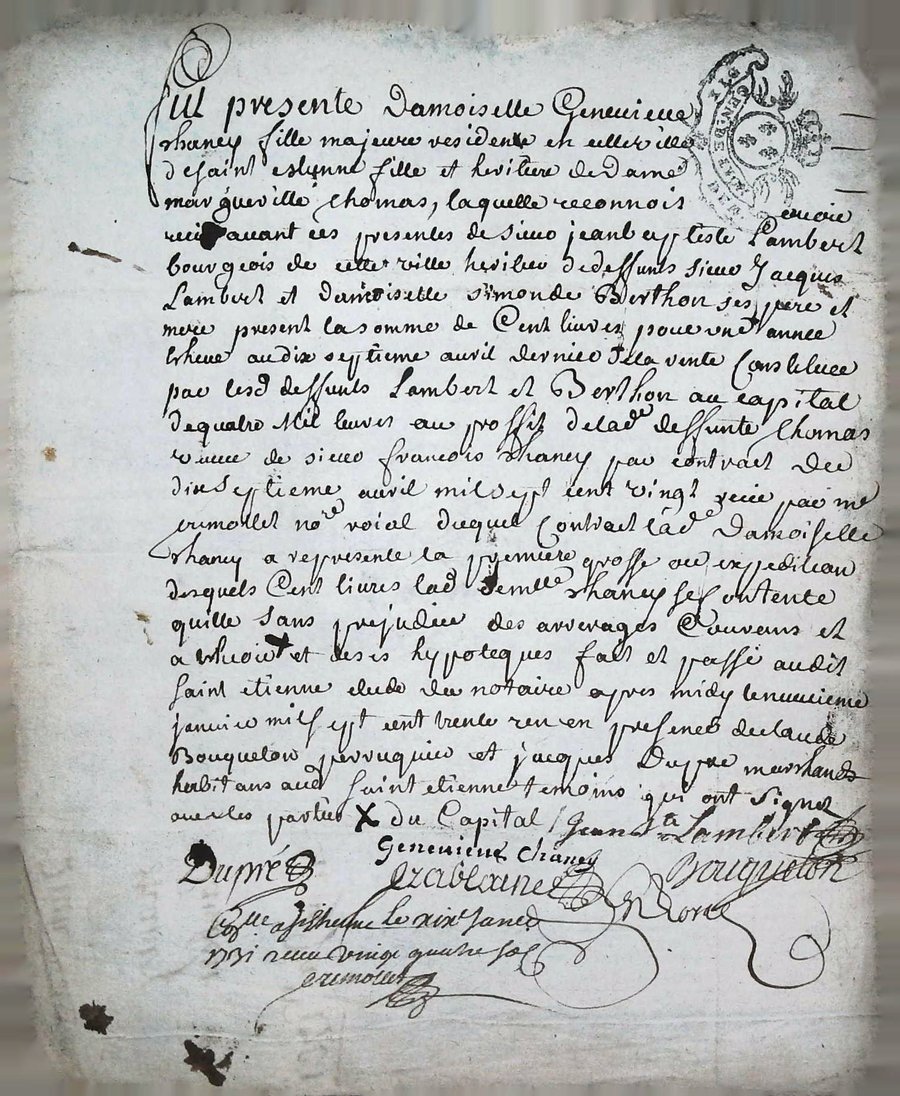 Fut presente Damoiselle Genevieve
Chaney fille majeure residente en cette ville
de saint estienne fille et heritiere de Dame
margueritte Thomas, laquelle reconnois avoir
receu avant ces presentes de sieur jean baptiste Lambert
bourgeois de cette ville heritier de deffunts sieur Jacques
Lambert et damoiselle simonde Berthon ses pere et
mere present la somme de Cent livres pour une année
echeue au dix septieme avril dernier de la rente Constituée
par lesd deffunts Lambert et Berthon au capital
de quatre Mil livres au proffit de lad.e deffunte Thomas
veuve de sieur françois Chaney par contract du
dix septieme avril mil sept cent vingt receu par me
cremollet no.re roial duquel Contract lad.e Damoiselle
Chaney a representé la premiere grosse ou expedition
desquels Cent livres lad demlle Chaney se Contente
quitte sans prejudice des arrerages Courans et
a echeoir X et de ses hypoteques fait et passé audit
saint etienne etude du notaire apres midy le neuvieme
janvier mil sept cent trente un en presence de claude
Bouqueton perruquier et jacques Dupre marchands
habitans aud saint etienne temoins qui ont signé
avec les parties X du Capital / Jean b.te Lambert
Genevieve Chaney
Dupré
Bouqueton
Con.lle a st etienne le xix.e janv
1731 receu vingt quatre sols
cremollet